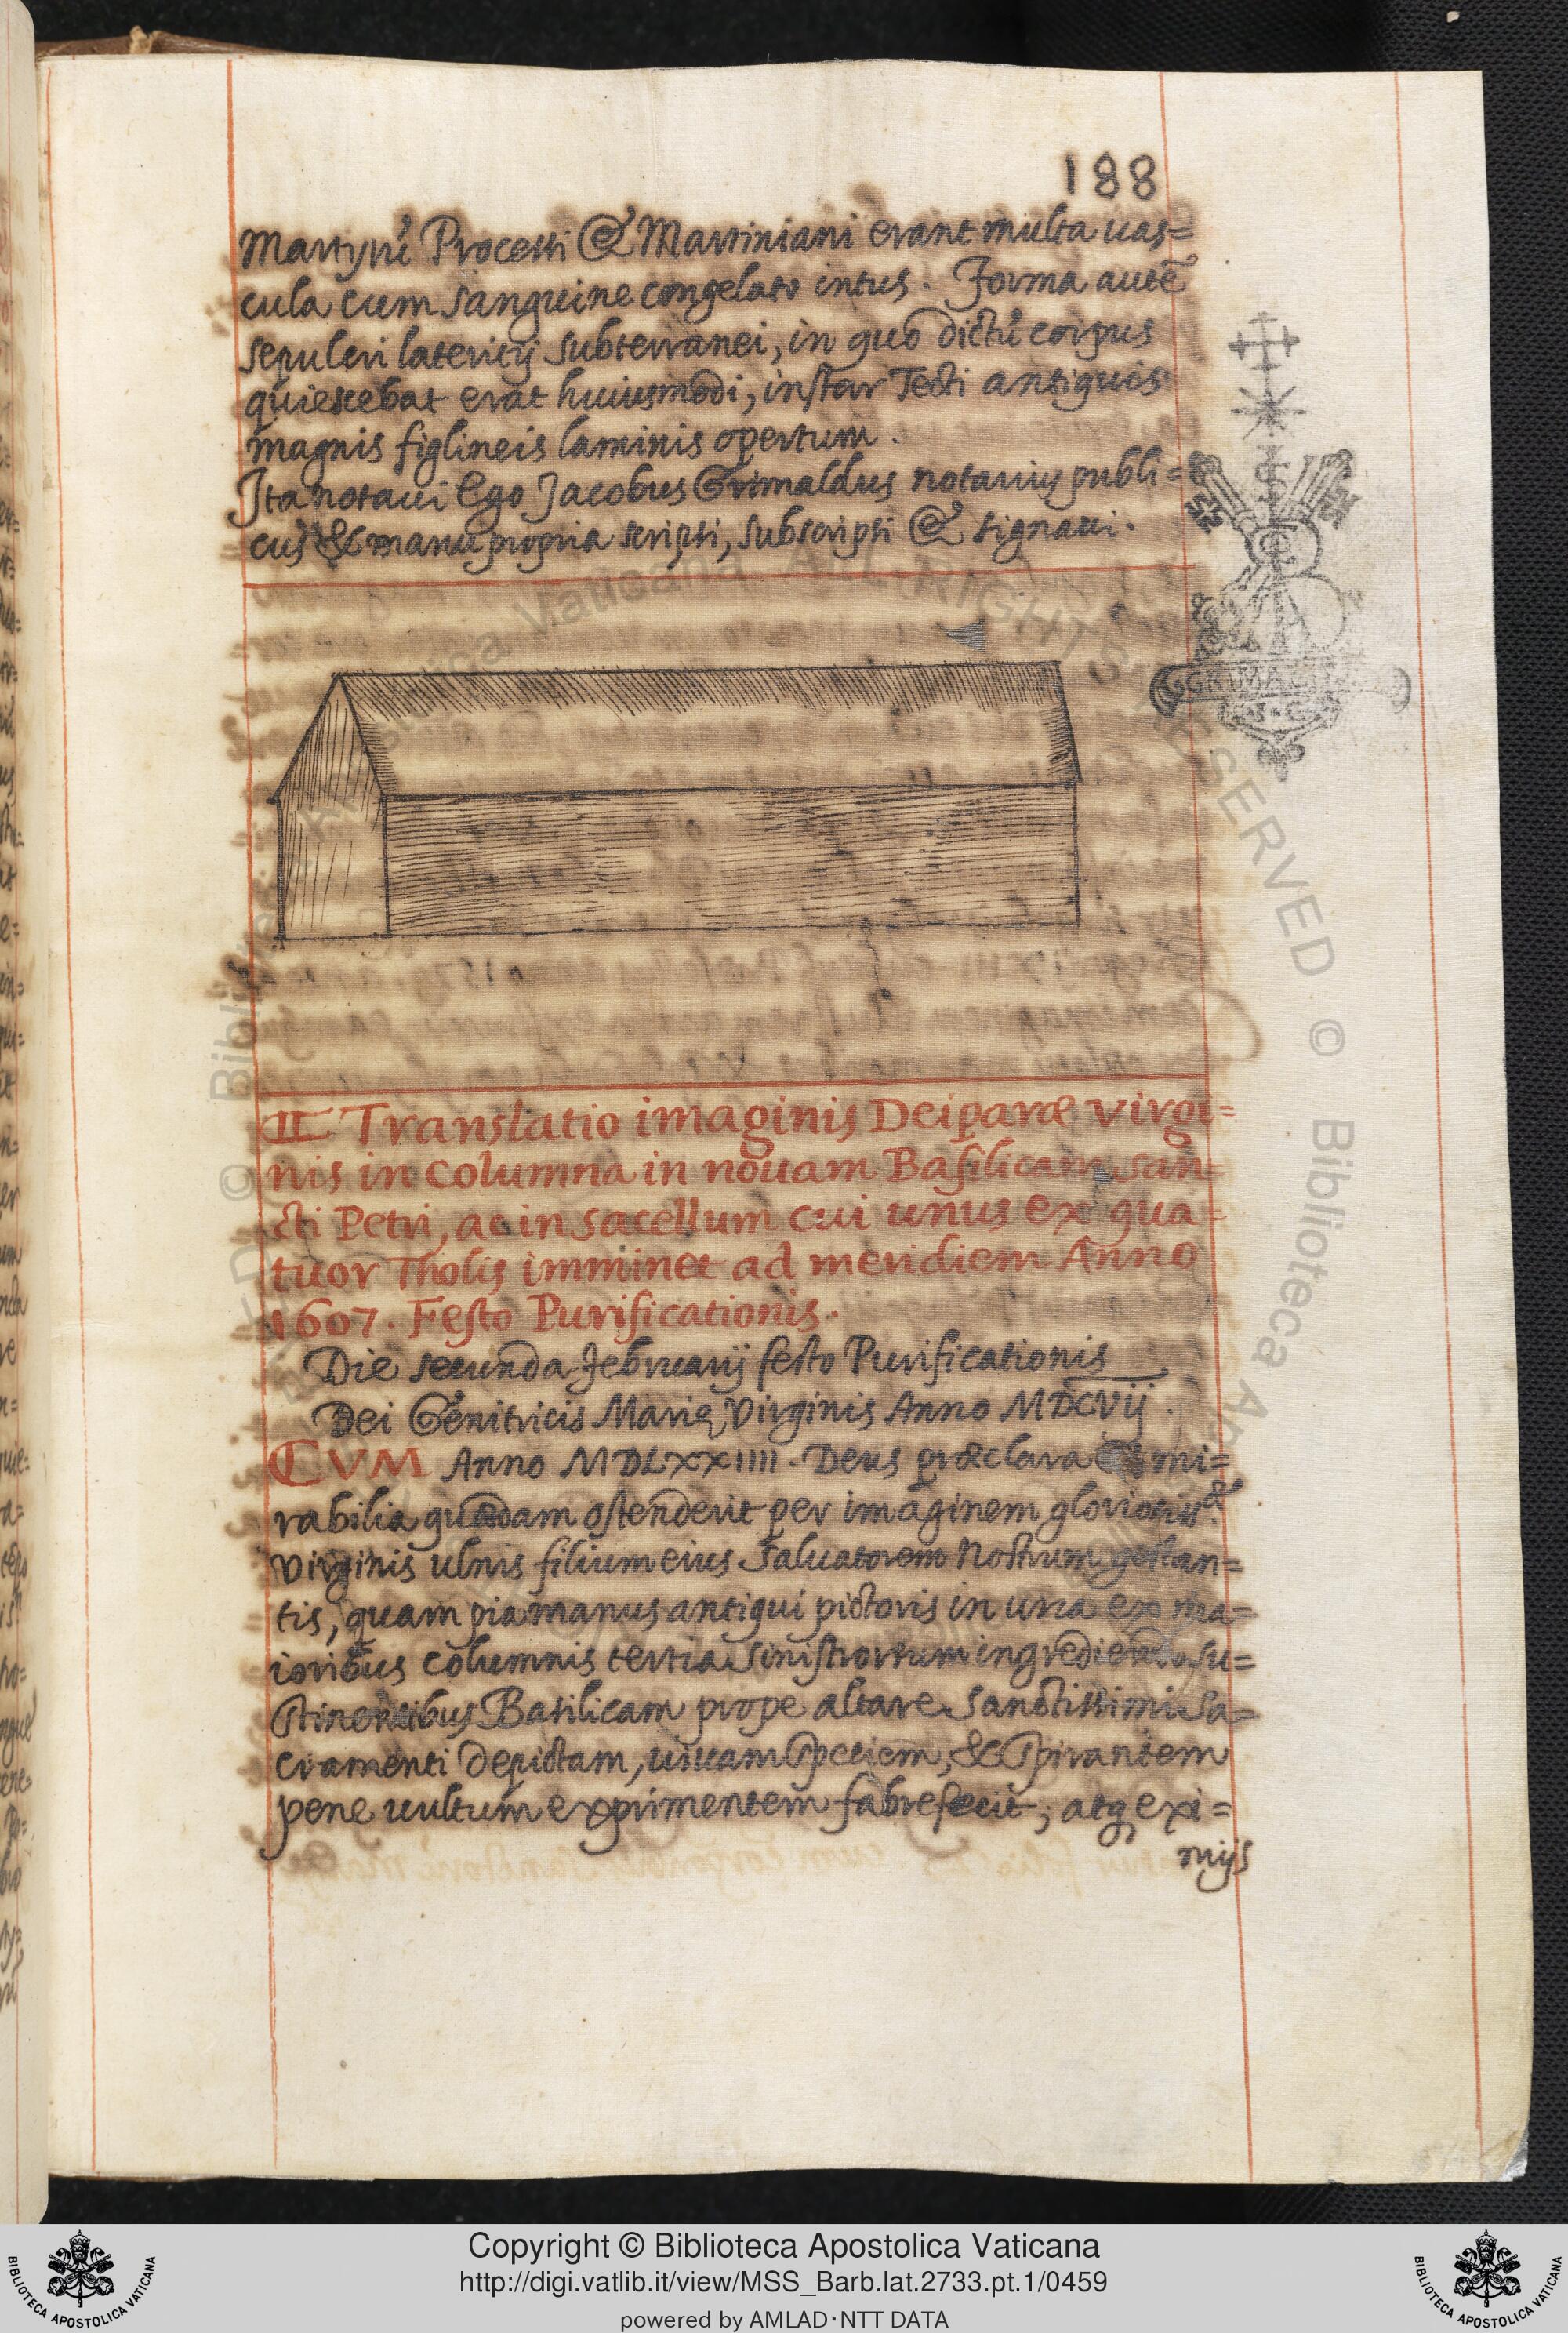 188
Martyrũ Processi & Martiniani erant multa uas=
cula cum sanguine congelato intus. Forma autẽ
sepulcri lateritij subterranei, in quo dictũ corpus
quiescebat erat huiusmodi, instar Tecti antiquis
magnis figlineis laminis opertum.
Ita notaui Ego Jacobus Grimaldus notarius publi=
cus & manu propria scripsi, subscripsi & signaui.
II Translatio imaginis Deiparæ Virgi=
nis in columna in nouam Basilicam san=
cti Petri, ac in sacellum cui unus ex qua=
tuor Tholis imminet ad meridiem Anno
1607. Festo Purificationis.
Die secunda Februarij festo Purificationis
Dei Genitricis Marię Virginis Anno MDCVij.
CVM Anno MDLXXIIII. Deus præclara mi=
rabilia quædam ostenderit per imaginem
Virginis ulnis filium eius Saluatorem Nostrum gestan=
tis, quam pia manus antiqui pictoris in una ex ma=
ioribus columnis tertia sinistrorsum ingrediendo su=
stinentibus Basilicam prope altare Sanctissimi Sa=
cramenti depictam, uiuam speciem, & spirantem
pene uultum exprimentem fabrefecit, atq exi=
mijs
GRIMAL
Copyright © Biblioteca Apostolica Vaticana
http://digi.vatlib.it/view/MSS_Barb.lat.2733.pt.1/0459
powered by AMLAD·NTT DATA
BIBLIOTECA APOSTOLICA VATICANA
BIBLIOTECA APOSTOLICA VATICANA